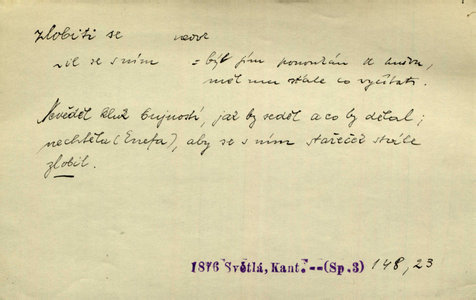 zlobiti se
zl. se s ním = být jím ponoukán k hněvu,
měl mu stále co vyčítati.
Nevěděl kluk bujností, jak by seděl a co by dělal;
nechtěla (Enefa), aby se s ním stařeček stále
zlobil.
1876 Světlá, Kant. -- (Sp.3) 148, 23